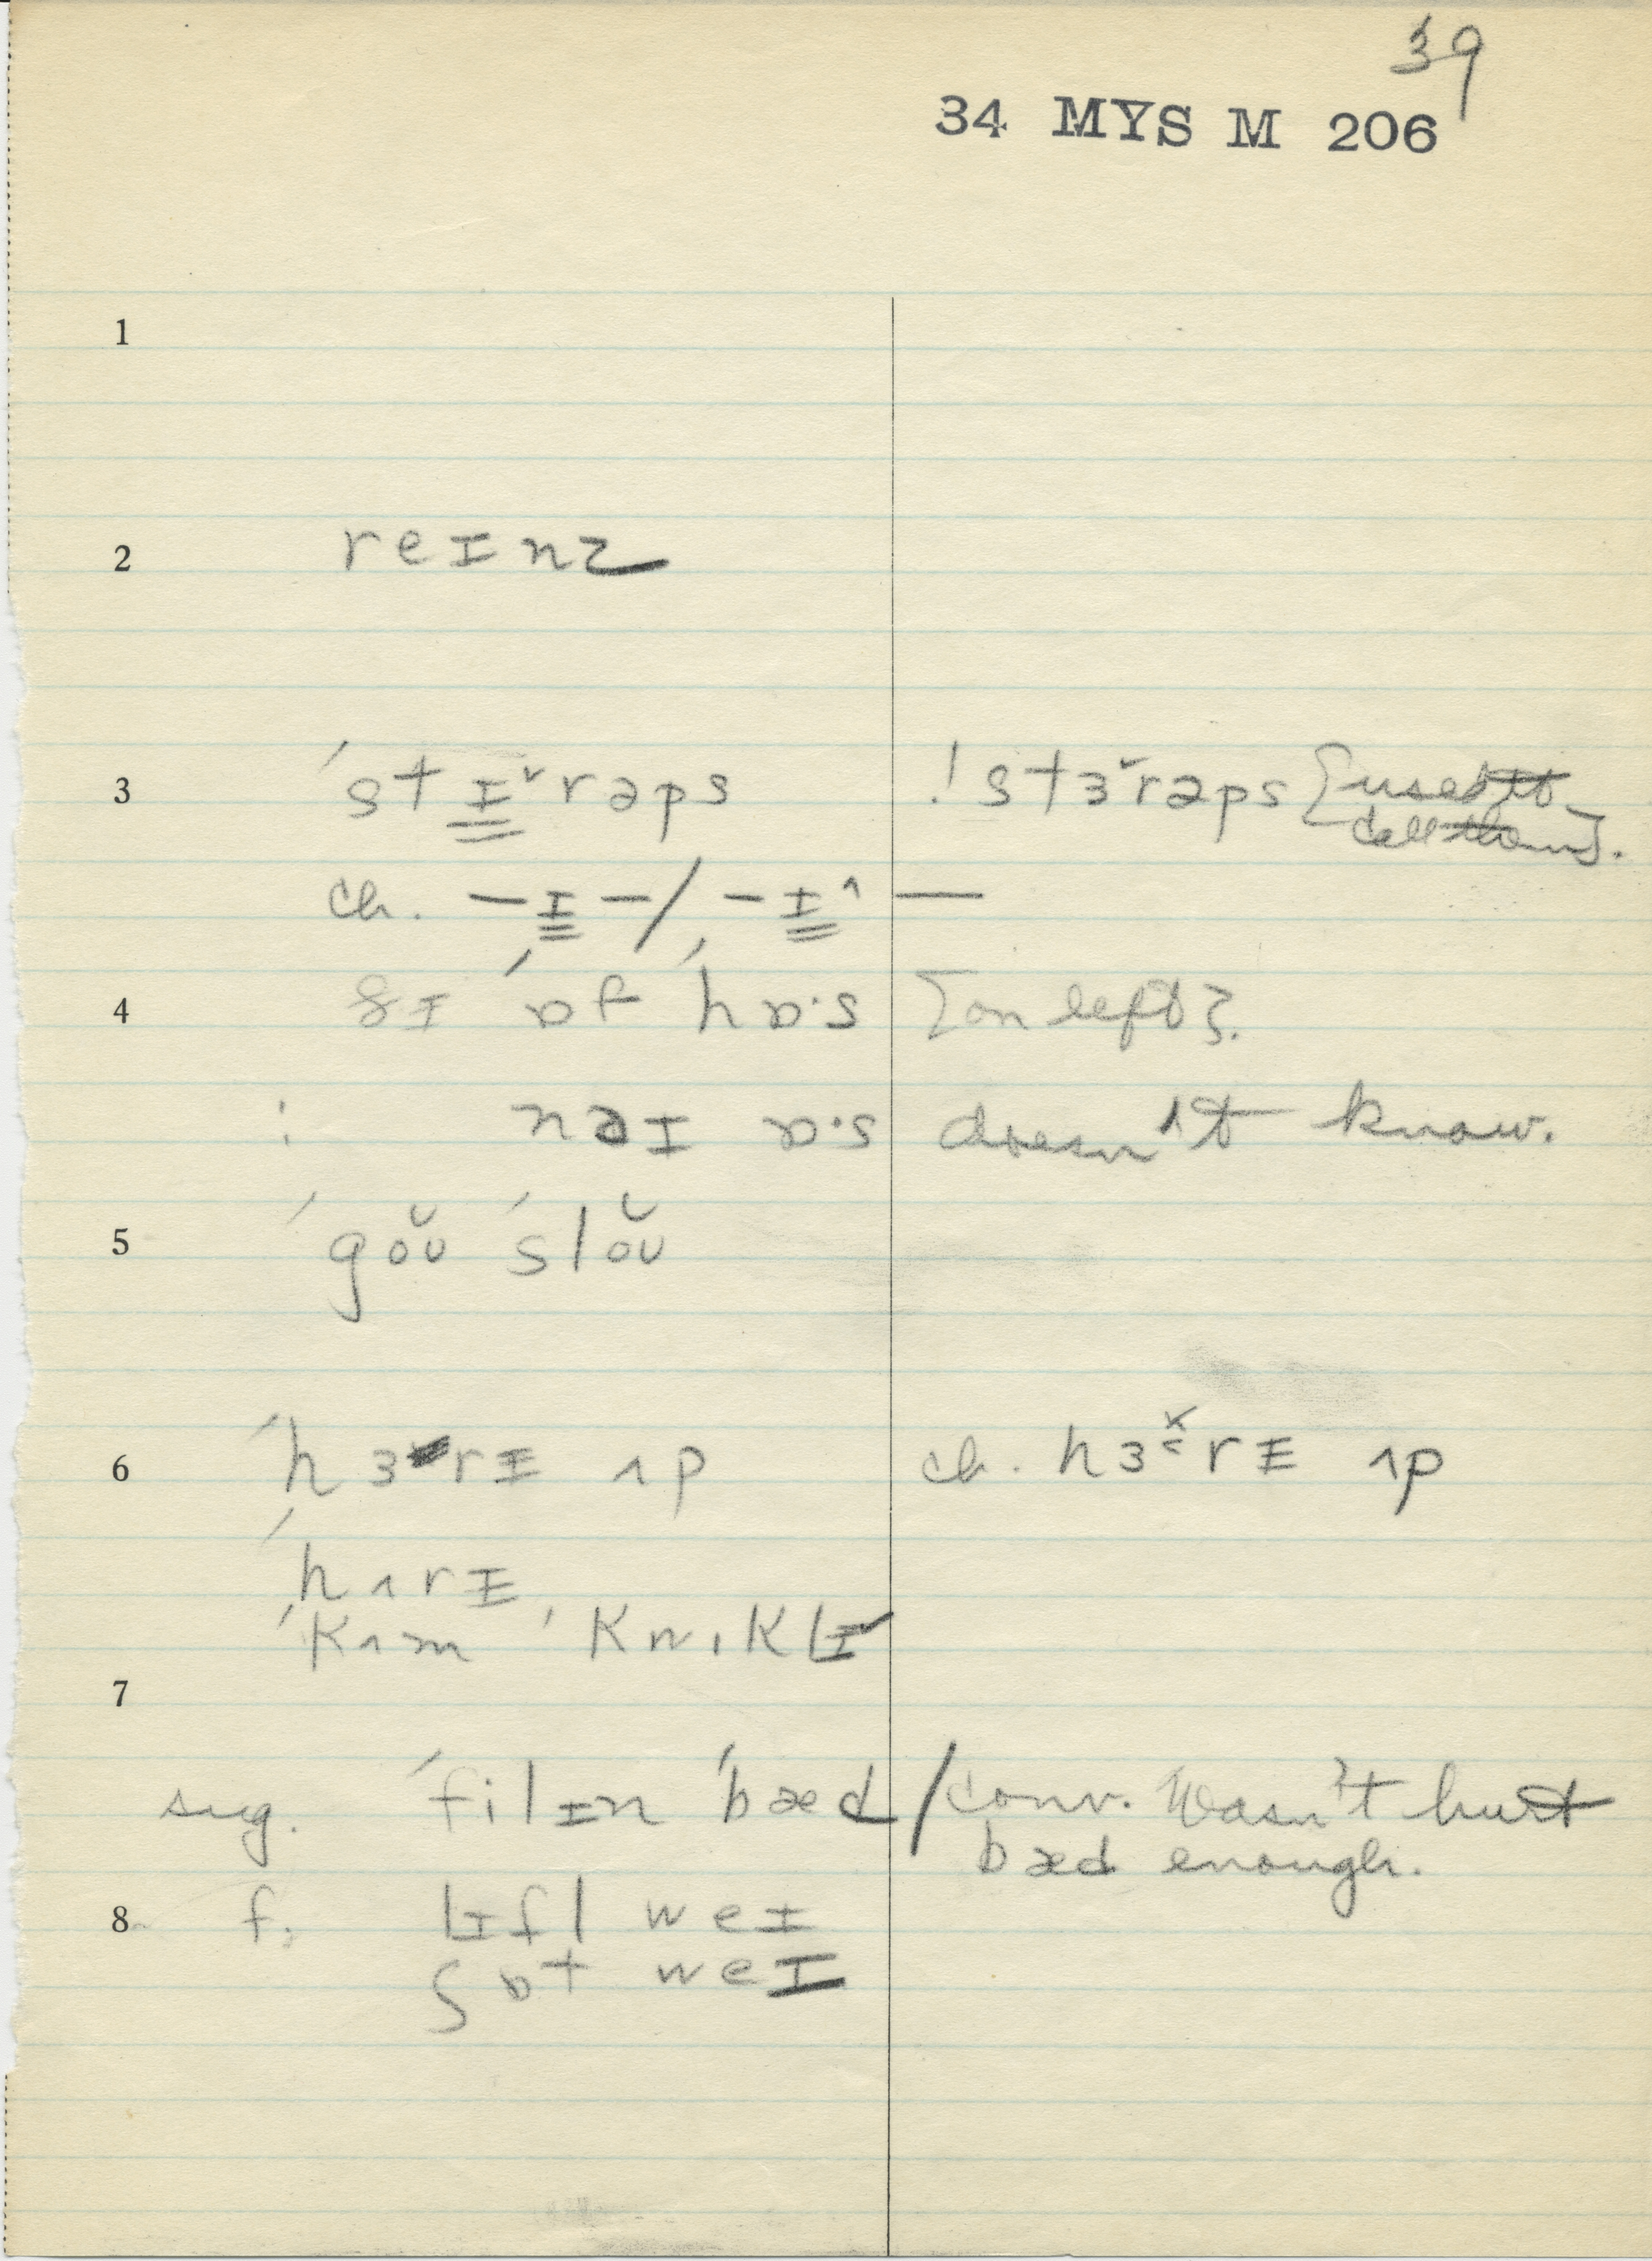 39
34 MYS M 206
1
2 reɪnz
3 ˈstɪ̳˅rəps ! stɜ˅rəps [used to
call them].
ch. –ɪ̳–/–ɪ̳^ —
4 ðɪ ˈɒf ˈhɒ·s [on left].
: nəɪ ɒ·s doesn't know.
5 ˈgŏʊ ˈslŏʊ
6 ˈhɜrɪ ʌp ch. hɜrɪ ʌp
ˈhʌrɪ
ˈkʌm ˈkwɪklɪ
7
sug. ˈfilɪn ˈbæd / conv. Wasn't hurt
bæd enough.
8 f: lɪfl weɪ
ʃɒt weɪ